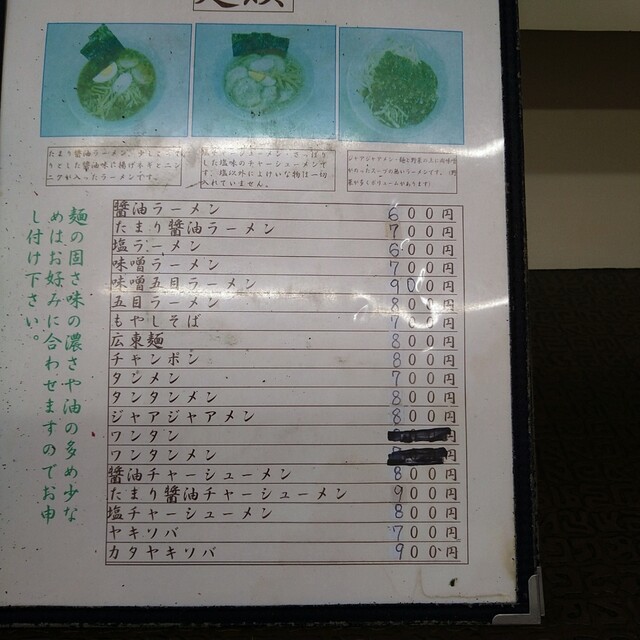 麺類
たまり醤油ラーメン
とした醤油味に揚げネギとニン
ニクが入ったラーメンです。
した塩味のチャーシューメンで
す。塩以外によけいな物は一切
入れていません。
ジャアジャアメン・麺と野菜の上に肉味噌
がかったスープの無いラーメンです。(野
菜が多くボリュームがあります)
醤油ラーメン 600円
たまり醤油ラーメン 700円
塩ラーメン 600円
味噌ラーメン 700円
味噌五目ラーメン 900円
五目ラーメン 800円
もやしそば 700円
広東麺 800円
チャンポン 800円
タンメン 700円
タンタンメン 800円
ジャアジャアメン 800円
ワンタン 円
ワンタンメン 円
醤油チャーシューメン 800円
たまり醤油チャーシューメン 900円
塩チャーシューメン 800円
ヤキソバ 700円
カタヤキソバ 900円
麺の固さ味の濃さや油の多め少な
めはお好みに合わせますのでお申
し付け下さい。